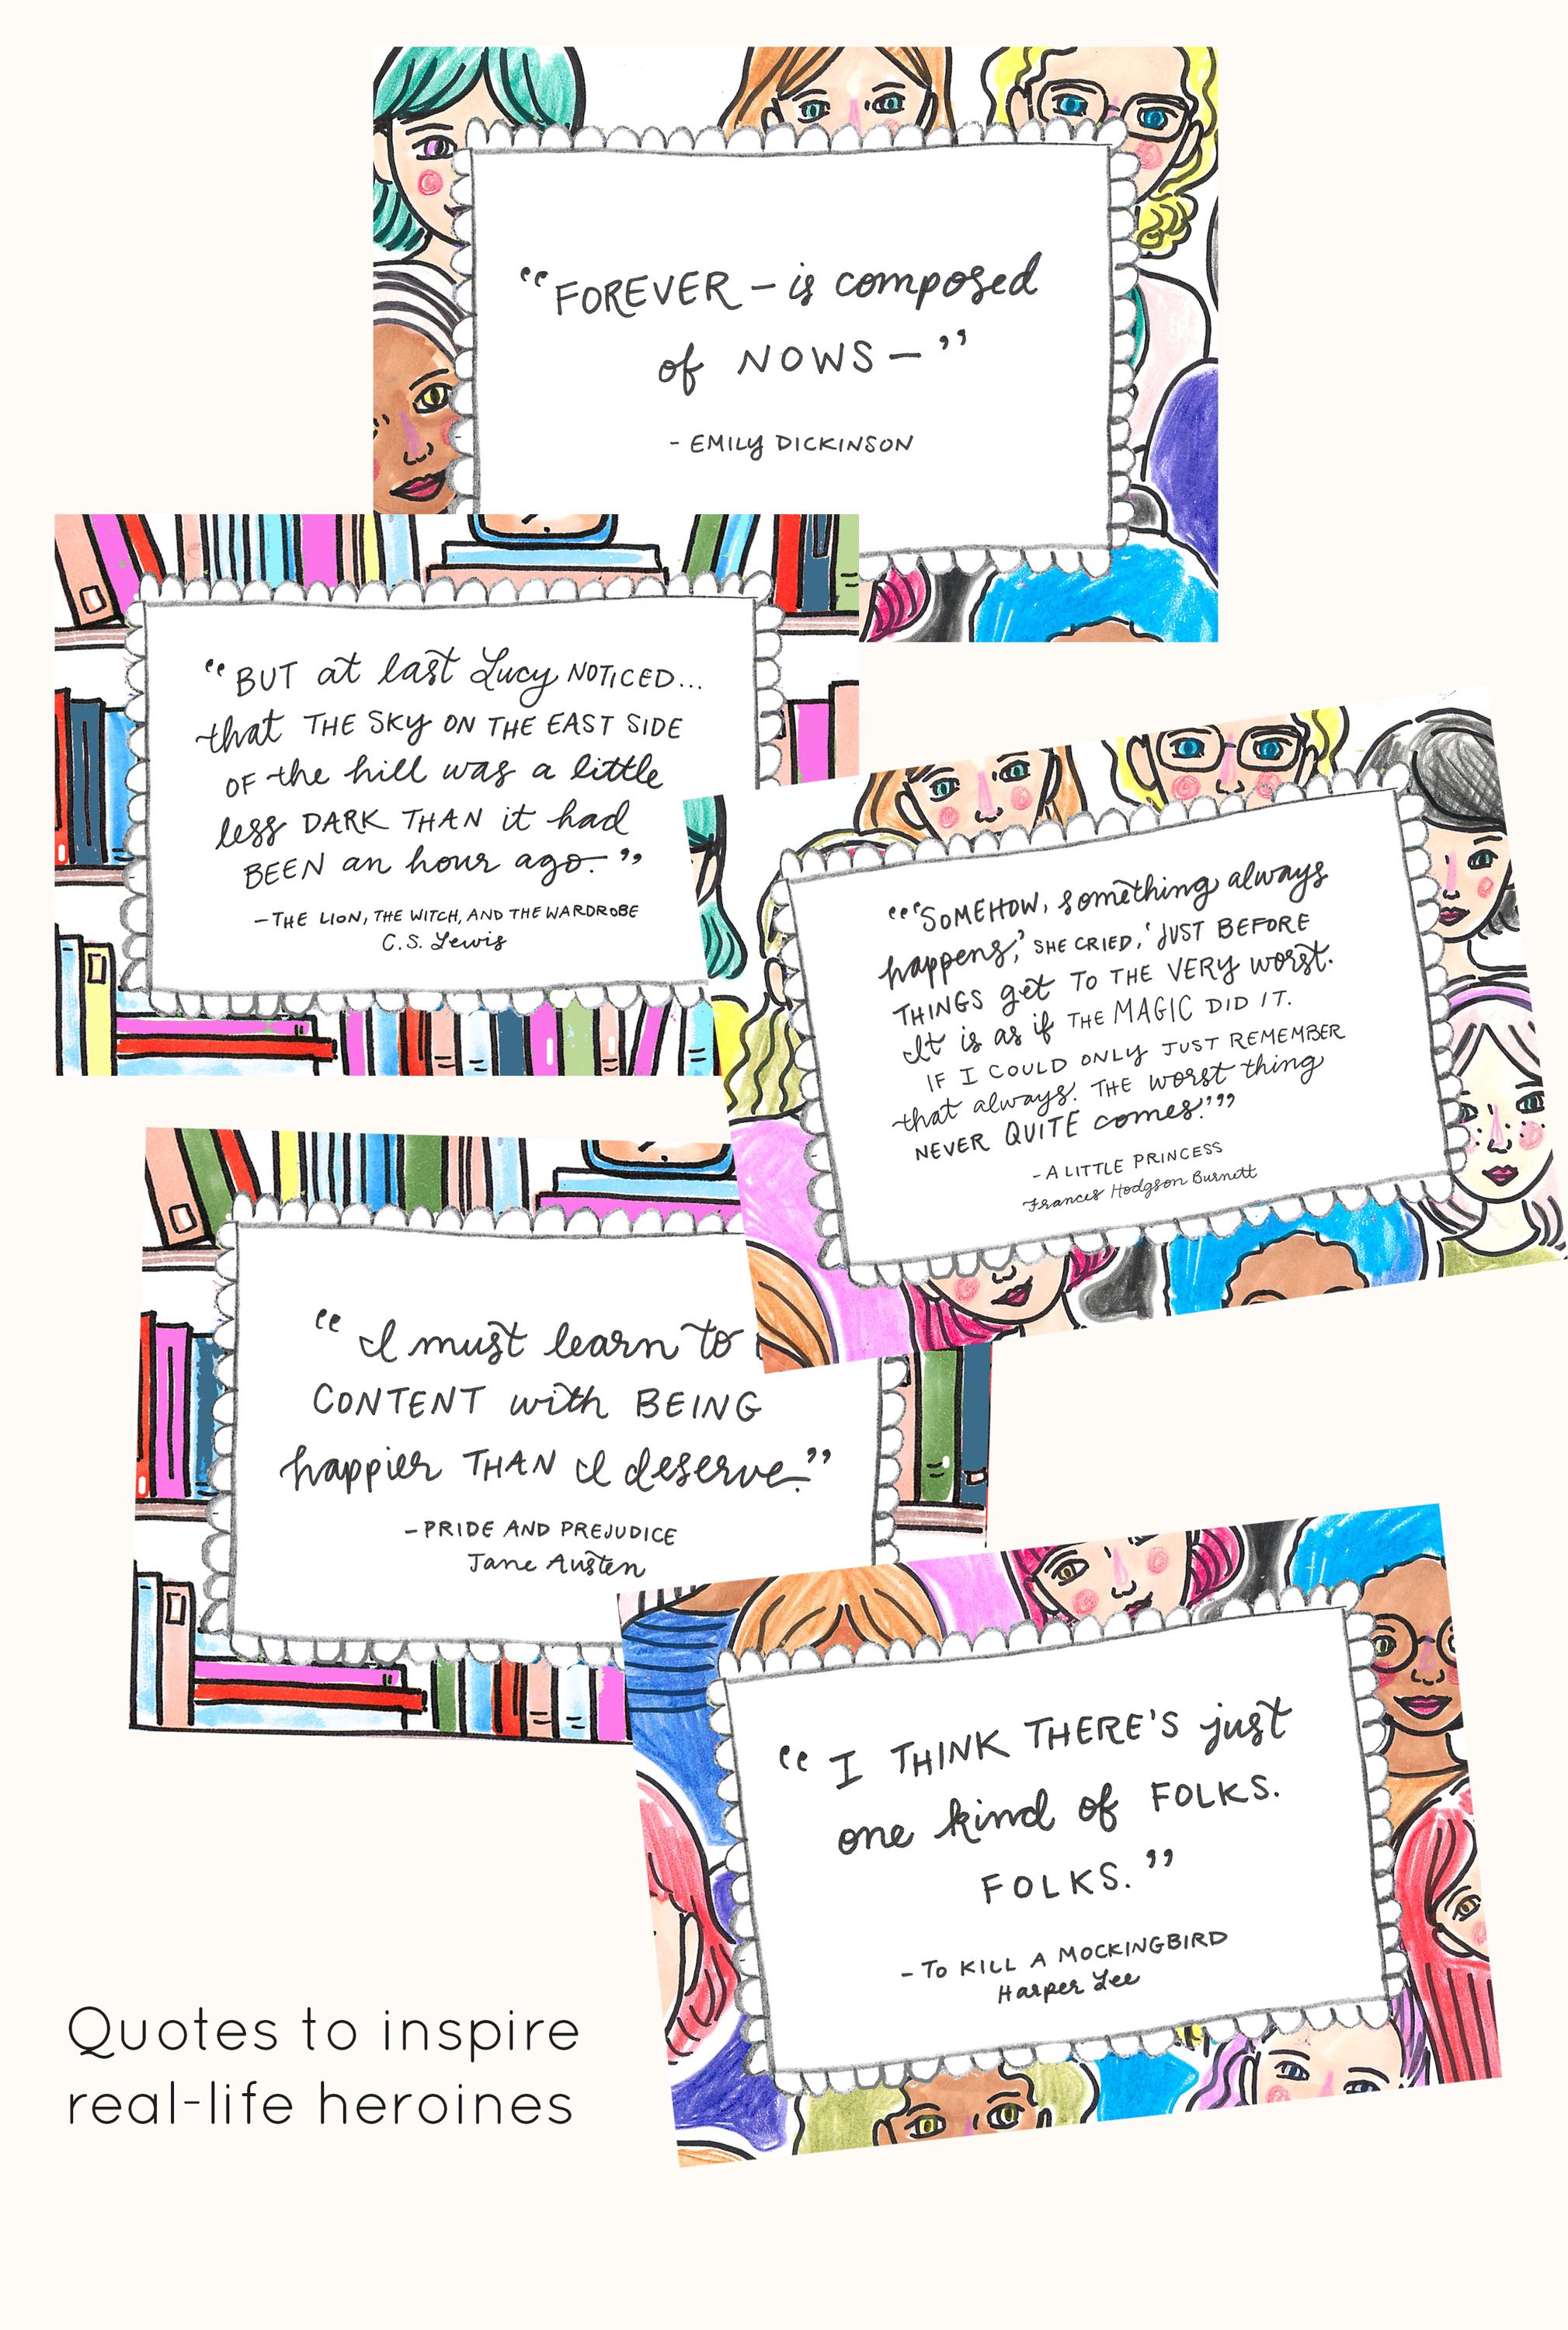 “FOREVER – is composed
of NOWS – ”
- EMILY DICKINSON
“BUT at last Lucy NOTICED...
that THE SKY ON THE EAST SIDE
OF the hill was a little
less DARK THAN it had
BEEN an hour ago.”
– THE LION, THE WITCH, AND THE WARDROBE
C.S. Lewis
“‘SOMEHOW, something always
happens,’ SHE CRIED, ‘JUST BEFORE
THINGS get TO THE VERY worst.
It is as if THE MAGIC DID IT.
IF I COULD ONLY JUST REMEMBER
that always. THE worst thing
NEVER QUITE comes.’”
- A LITTLE PRINCESS
Frances Hodgson Burnett
“I must learn to
CONTENT with BEING
happier THAN I deserve.”
– PRIDE AND PREJUDICE
Jane Austen
“I THINK THERE'S just
one kind of FOLKS.
FOLKS.”
- TO KILL A MOCKINGBIRD
Harper Lee
Quotes to inspire
real-life heroines